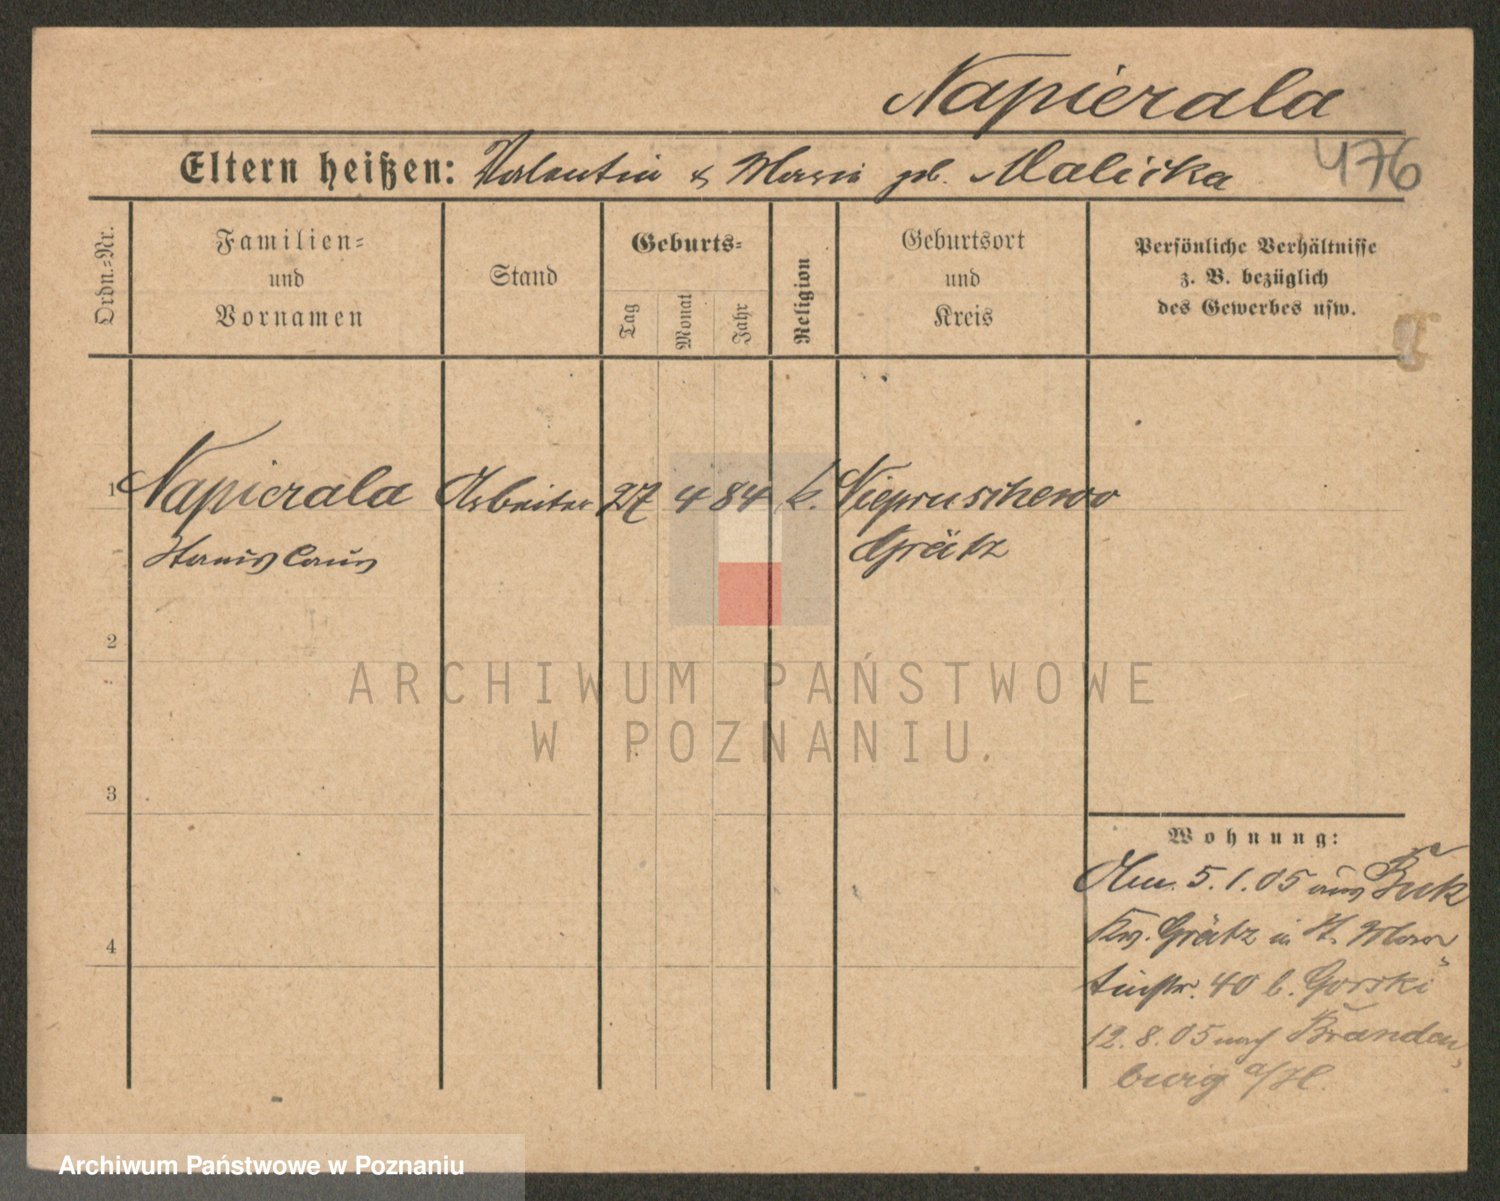 Napierala
476
Eltern heißen: Valentin & Maria geb. Malicka
Ordn.=Nr.
Familien=
und
Vornamen
Stand
Geburts=
Tag
Monat
Jahr
Religion
Geburtsort
und
Kreis
Persönliche Verhältnisse
z. B. bezüglich
des Gewerbes usw.
1 Napierala Arbeiter 27 4 84 k. Niepruschewo
Stanislaus Grätz
2
3
4
Wohnung:
5.1.05 aus Buk
Kr. Grätz in St. Mar=
tinstr. 40 b. Gorski
12.8.05 nach Branden=
burg a/H.
ARCHIWUM PAŃSTWOWE
W POZNANIU.
Archiwum Państwowe w Poznaniu